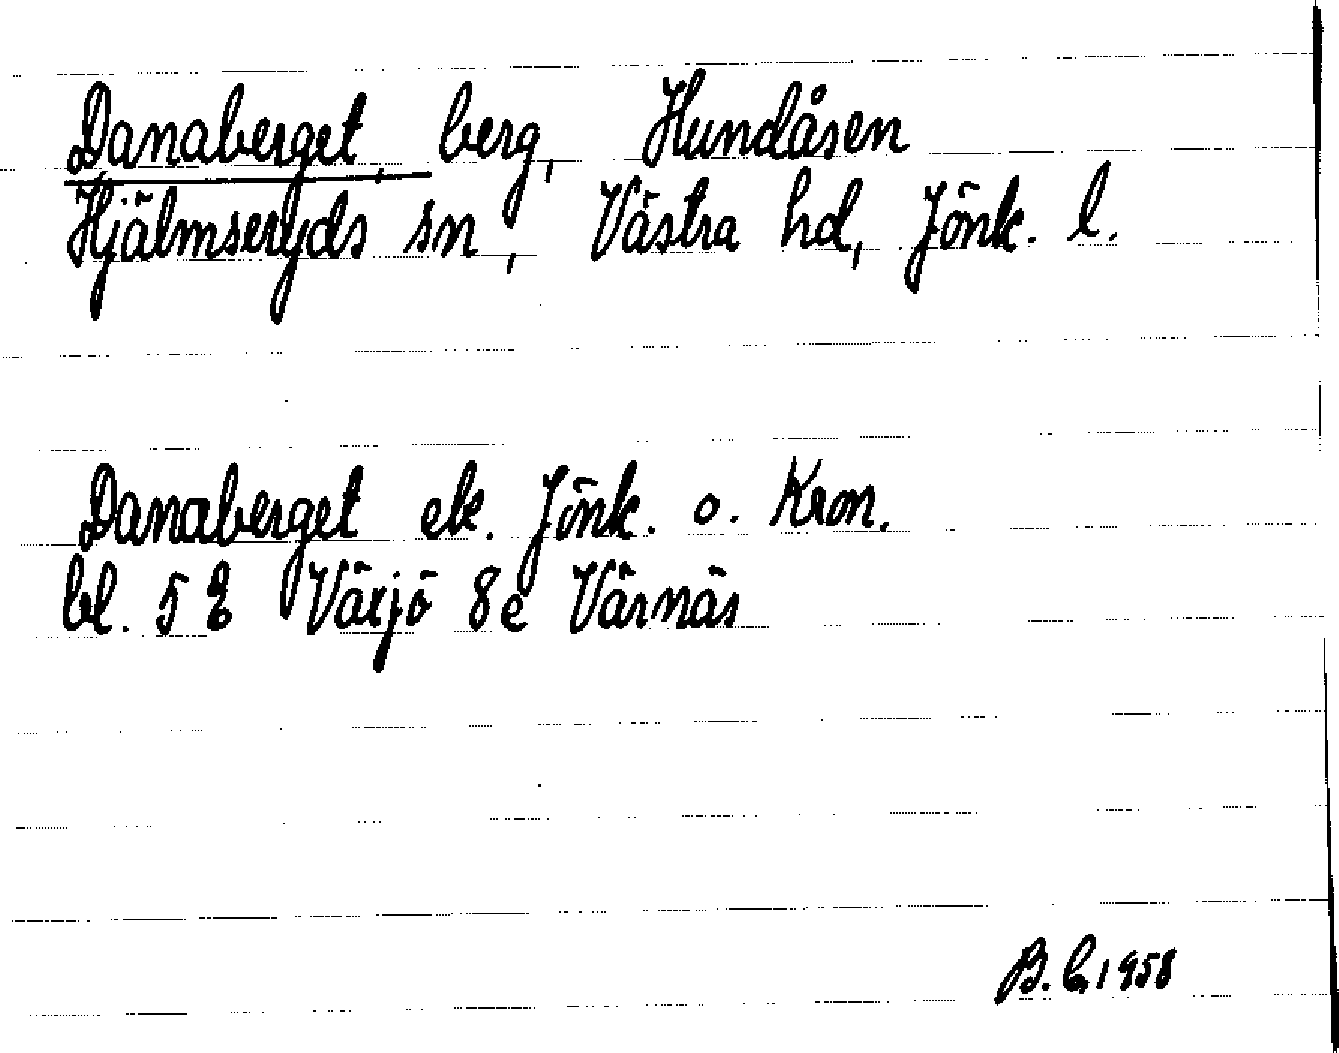 Danaberget, berg, Hundåsen
Hjälmseryds sn, Västra hd, Jönk. l.
Danaberget ek. Jönk. o. Kron.
bl. 5 E Växjö 8e Värnäs
B. 1958